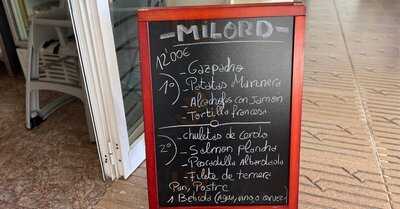 -MiLORD-
12'00€
1º) -Gazpacho
-Patatas Marinera
-Alcachofas con Jamon
-Tortilla francesa
2º) -chuletas de cerdo
-Salmon plancha
-Pescadilla Albardada
-Filete de ternera
Pan, Postre
1 Bebida (Agua, vino o cerveza)